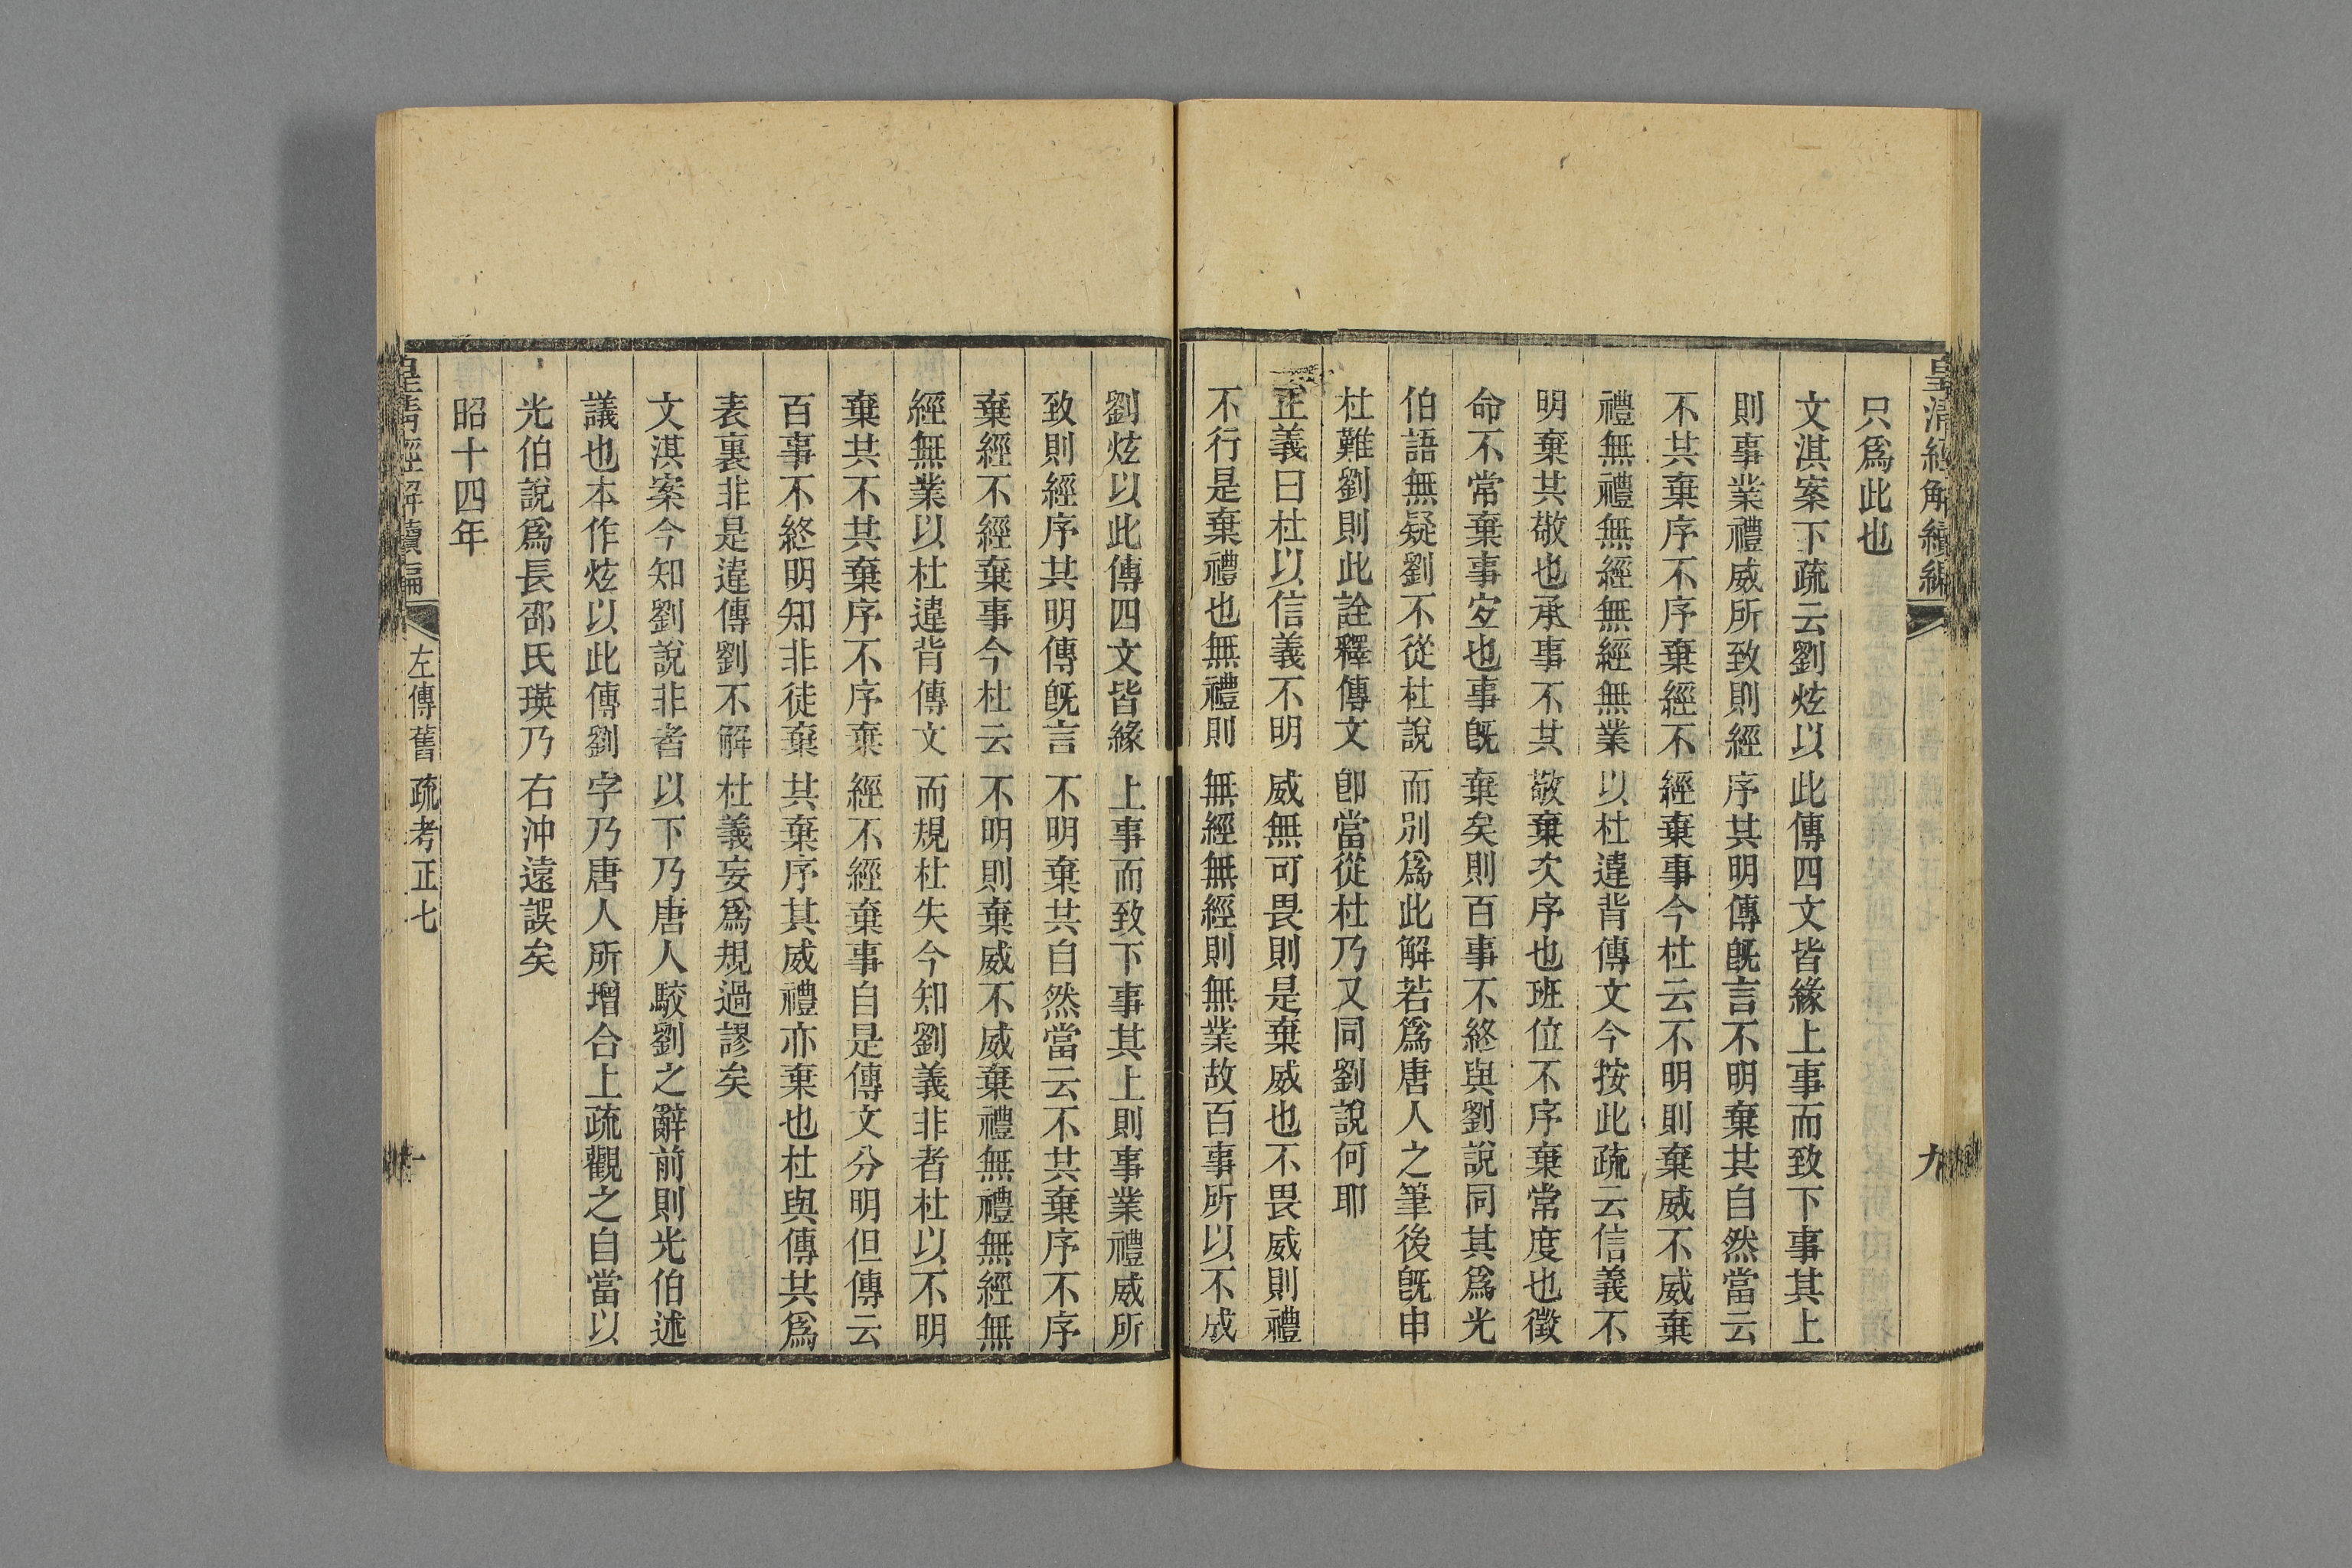 皇清經解續編 九
只爲此也
文淇案下疏云劉炫以此傳四文皆緣上事而致下事其上
則事業禮威所致則經序其明傳旣言不明棄其自然當云
不共棄序不序棄經不經棄事今杜云不明則棄威不威棄
禮無禮無經無經無業以杜違背傳文今按此疏云信義不
明棄其敬也承事不共敬棄次序也班位不序棄常度也徵
命不常棄事㝎也事旣棄矣則百事不終與劉說同其爲光
伯語無疑劉不從杜說而別爲此解若爲唐人之筆後旣申
杜難劉則此詮釋傳文卽當從杜乃又同劉說何耶
正義曰杜以信義不明威無可畏則是棄威也不畏威則禮
不行是棄禮也無禮則無經無經則無業故百事所以不成
劉炫以此傳四文皆緣上事而致下事其上則事業禮威所
致則經序其明傳旣言不明棄共自然當云不共棄序不序
棄經不經棄事今杜云不明則棄威不威棄禮無禮無經無
經無業以杜違背傳文而規杜失今知劉義非者杜以不明
棄共不共棄序不序棄經不經棄事自是傳文分明但傳云
百事不終明知非徒棄共棄序其威禮亦棄也杜與傳共爲
表裏非是違傳劉不解杜義妄爲規過謬矣
文淇案今知劉說非者以下乃唐人駮劉之辭前則光伯述
議也本作炫以此傳劉字乃唐人所增合上疏觀之自當以
光伯說爲長邵氏瑛乃右沖遠誤矣
昭十四年
皇淸經解續編 左傳舊疏考正七 十